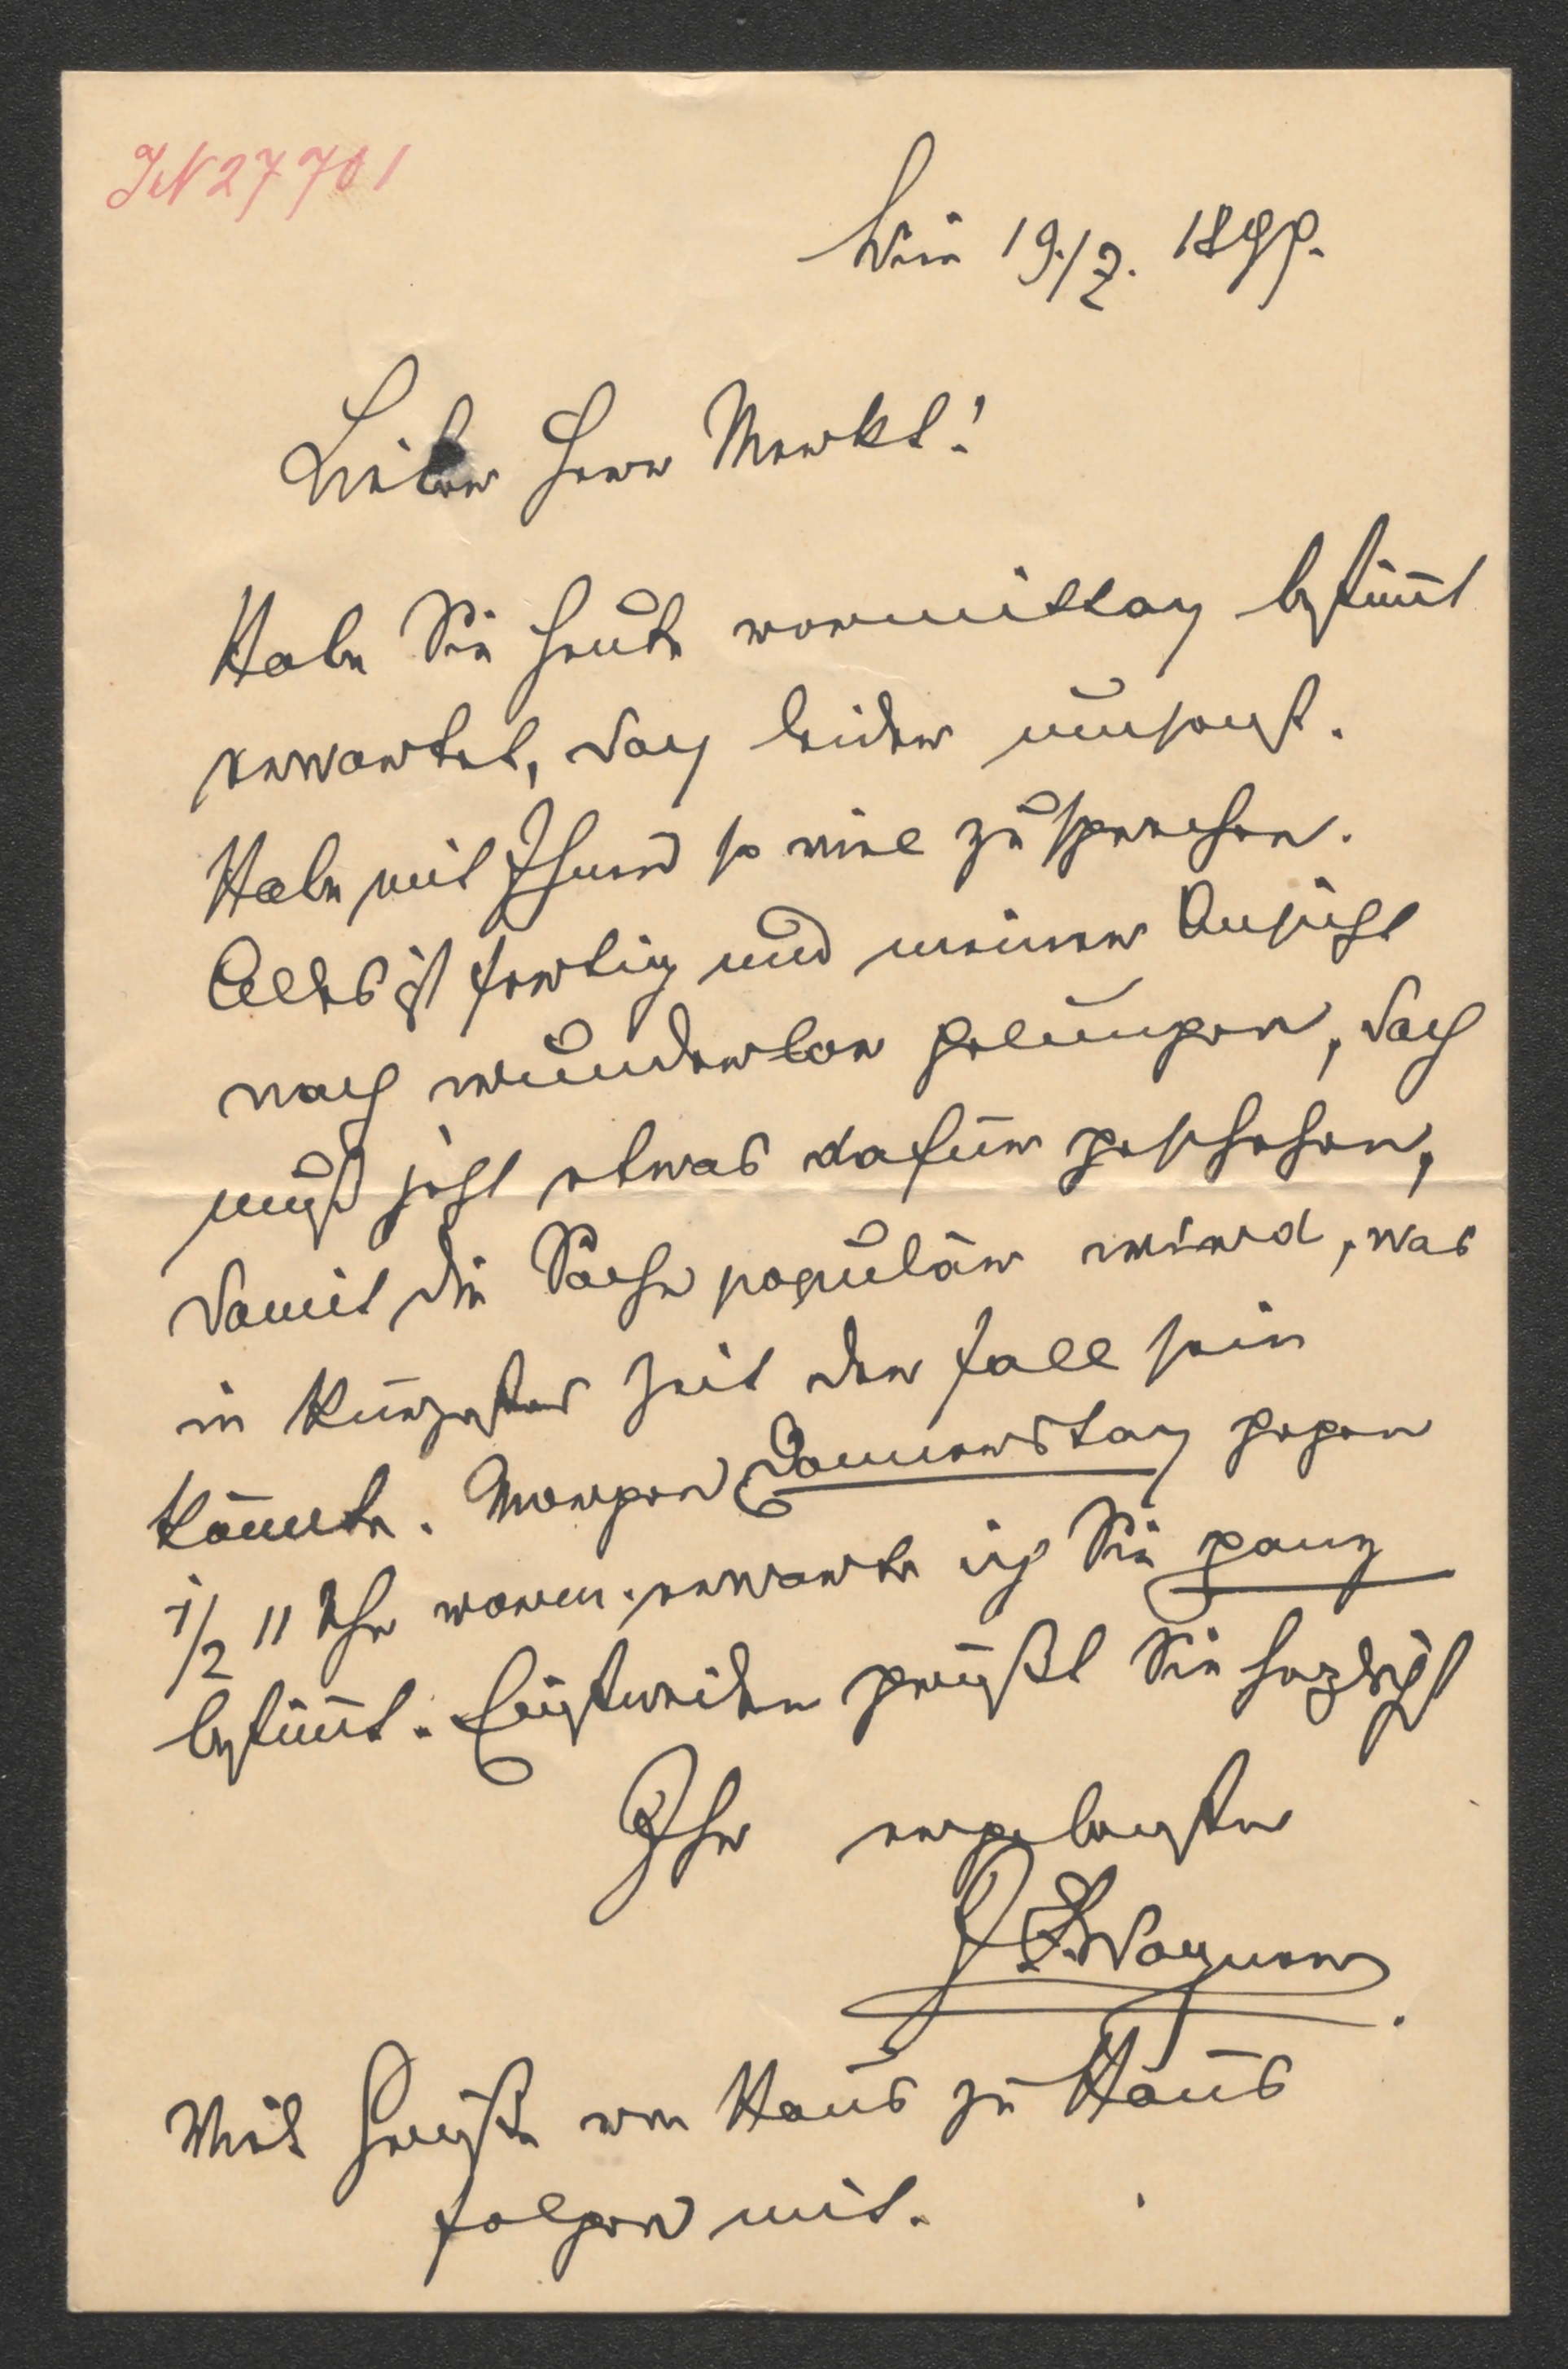 JN 27701
Wien 19./7. 1899.
Lieber Herr Merkt!
Habe Sie heute vormittag bestim̄t
erwartet, doch leider umsonst.
Habe mit Ihnen so viel zu sprechen.
Alles ist fertig und meiner Ansicht
nach wunderbar gelungen, doch
muß jetzt etwas dafür geschehen,
damit die Sache populär wird, was
in kürzester Zeit der Fall sein
kön̄te. Morgen Donnerstag gegen
1/2 11 Uhr vorm. erwarte ich Sie ganz
bestim̄t. Einstweilen grüßt Sie herzlichst
Ihr ergebenster
J. F. Wagner
Viele Grüße von Haus zu Haus
folgen mit.